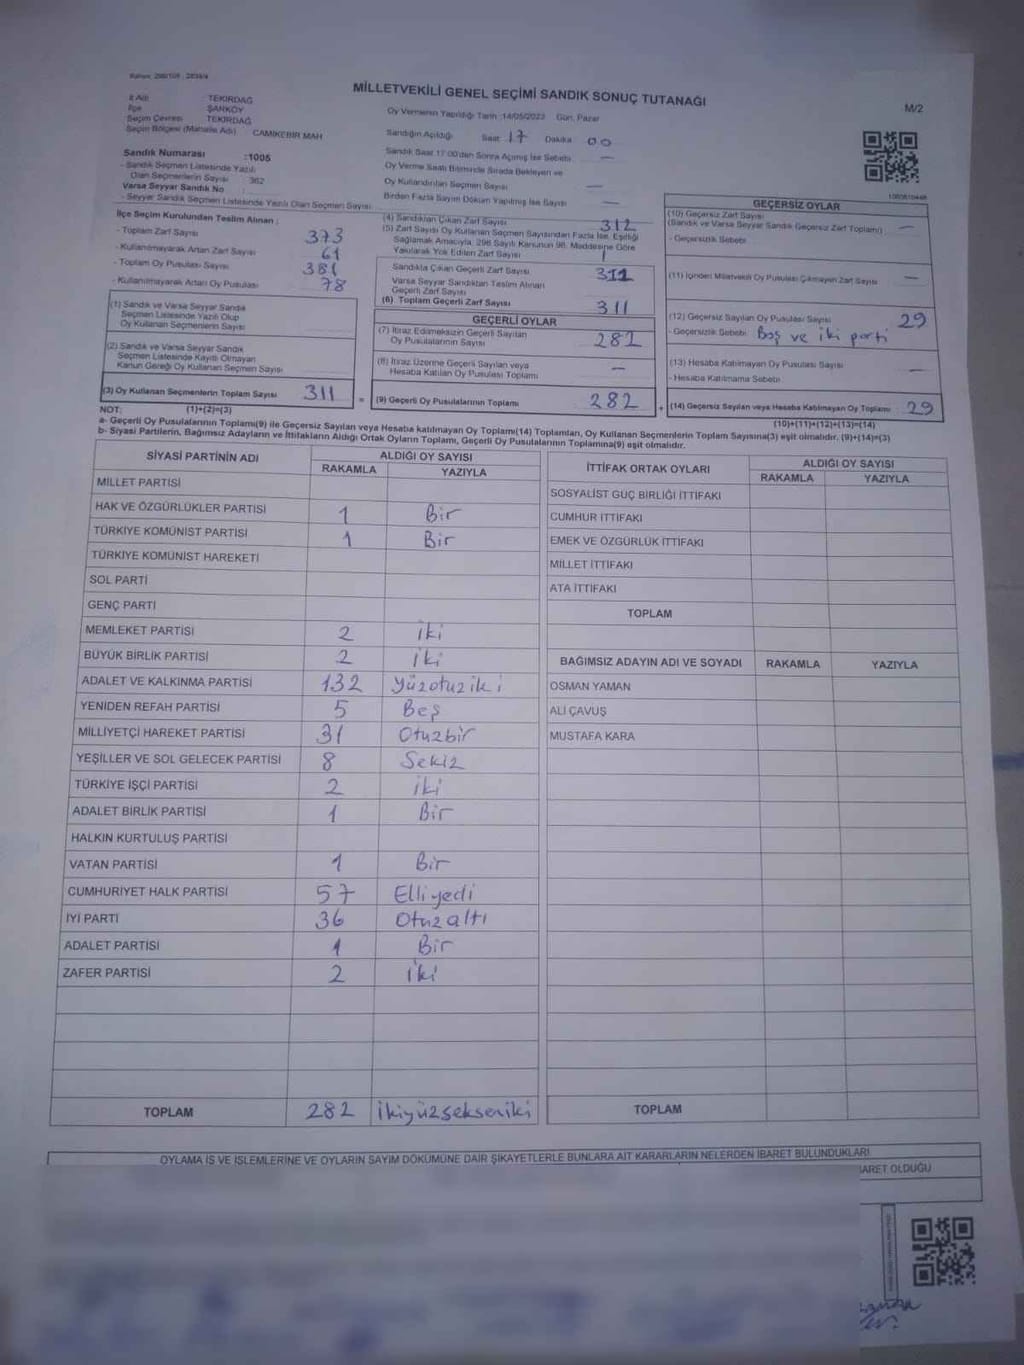 MİLLETVEKİLİ GENEL SEÇİMİ SANDIK SONUÇ TUTANAĞI
M/2
İl Adı : TEKİRDAĞ
İlçe : ŞARKÖY
Seçim Çevresi : TEKİRDAĞ
Seçim Bölgesi (Mahalle Adı) : CAMİKEBİR MAH
Sandık Numarası :1005
- Sandık Seçmen Listesinde Yazılı
Olan Seçmenlerin Sayısı : 362
Varsa Seyyar Sandık No :
- Seyyar Sandık Seçmen Listesinde Yazılı Olan Seçmen Sayısı :
Oy Vermenin Yapıldığı Tarih :14/05/2023 Gün: Pazar
Sandığın Açıldığı Saat: 17 Dakika: 00
Sandık Saat 17:00'den Sonra Açılmış İse Sebebi: —
Oy Verme Saati Bitiminde Sırada Bekleyen ve
Oy Kullandırılan Seçmen Sayısı —
Birden Fazla Sayım Döküm Yapılmış İse Sayısı —
İlçe Seçim Kurulundan Teslim Alınan :
- Toplam Zarf Sayısı 373
- Kullanılmayarak Artan Zarf Sayısı 61
- Toplam Oy Pusulası Sayısı 381
- Kullanılmayarak Artan Oy Pusulası 78
(1) Sandık ve Varsa Seyyar Sandık
Seçmen Listesinde Yazılı Olup
Oy Kullanan Seçmenlerin Sayısı
(2) Sandık ve Varsa Seyyar Sandık
Seçmen Listesinde Kayıtlı Olmayan
Kanun Gereği Oy Kullanan Seçmen Sayısı
(3) Oy Kullanan Seçmenlerin Toplam Sayısı 311
(1)+(2)=(3)
(4) Sandıktan Çıkan Zarf Sayısı 312
(5) Zarf Sayısı Oy Kullanan Seçmen Sayısından Fazla İse, Eşitliği
Sağlamak Amacıyla, 298 Sayılı Kanunun 98. Maddesine Göre
Yakılarak Yok Edilen Zarf Sayısı 1
Sandıkta Çıkan Geçerli Zarf Sayısı 311
Varsa Seyyar Sandıktan Teslim Alınan
Geçerli Zarf Sayısı
(6) Toplam Geçerli Zarf Sayısı 311
GEÇERLİ OYLAR
(7) İtiraz Edilmeksizin Geçerli Sayılan
Oy Pusulalarının Sayısı 282
(8) İtiraz Üzerine Geçerli Sayılan veya
Hesaba Katılan Oy Pusulası Toplamı —
= (9) Geçerli Oy Pusulalarının Toplamı 282
GEÇERSİZ OYLAR
(10) Geçersiz Zarf Sayısı
(Sandık ve Varsa Seyyar Sandık Geçersiz Zarf Toplamı) —
- Geçersizlik Sebebi
(11) İçinden Milletvekili Oy Pusulası Çıkmayan Zarf Sayısı —
(12) Geçersiz Sayılan Oy Pusulası Sayısı 29
- Geçersizlik Sebebi Boş ve iki parti
(13) Hesaba Katılmayan Oy Pusulası Sayısı —
- Hesaba Katılmama Sebebi
+ (14) Geçersiz Sayılan veya Hesaba Katılmayan Oy Toplamı 29
(10)+(11)+(12)+(13)=(14)
NOT:
a- Geçerli Oy Pusulalarının Toplamı(9) ile Geçersiz Sayılan veya Hesaba katılmayan Oy Toplamı(14) Toplamları, Oy Kullanan Seçmenlerin Toplam Sayısına(3) eşit olmalıdır. (9)+(14)=(3)
b- Siyasi Partilerin, Bağımsız Adayların ve İttifakların Aldığı Ortak Oyların Toplamı, Geçerli Oy Pusulalarının Toplamına(9) eşit olmalıdır.
SİYASİ PARTİNİN ADI ALDIĞI OY SAYISI
RAKAMLA YAZIYLA
MİLLET PARTİSİ
HAK VE ÖZGÜRLÜKLER PARTİSİ 1 Bir
TÜRKİYE KOMÜNİST PARTİSİ 1 Bir
TÜRKİYE KOMÜNİST HAREKETİ
SOL PARTİ
GENÇ PARTİ
MEMLEKET PARTİSİ 2 iki
BÜYÜK BİRLİK PARTİSİ 2 iki
ADALET VE KALKINMA PARTİSİ 132 Yüzotuziki
YENİDEN REFAH PARTİSİ 5 Beş
MİLLİYETÇİ HAREKET PARTİSİ 31 Otuzbir
YEŞİLLER VE SOL GELECEK PARTİSİ 8 Sekiz
TÜRKİYE İŞÇİ PARTİSİ 2 iki
ADALET BİRLİK PARTİSİ 1 Bir
HALKIN KURTULUŞ PARTİSİ
VATAN PARTİSİ 1 Bir
CUMHURİYET HALK PARTİSİ 57 Elliyedi
İYİ PARTİ 36 Otuzaltı
ADALET PARTİSİ 1 Bir
ZAFER PARTİSİ 2 iki
TOPLAM 282 ikiyüzsekseniki
İTTİFAK ORTAK OYLARI ALDIĞI OY SAYISI
RAKAMLA YAZIYLA
SOSYALİST GÜÇ BİRLİĞİ İTTİFAKI
CUMHUR İTTİFAKI
EMEK VE ÖZGÜRLÜK İTTİFAKI
MİLLET İTTİFAKI
ATA İTTİFAKI
TOPLAM
BAĞIMSIZ ADAYIN ADI VE SOYADI RAKAMLA YAZIYLA
OSMAN YAMAN
ALİ ÇAVUŞ
MUSTAFA KARA
TOPLAM
OYLAMA İŞ VE İŞLEMLERİNE VE OYLARIN SAYIM DÖKÜMÜNE DAİR ŞİKAYETLERLE BUNLARA AİT KARARLARIN NELERDEN İBARET BULUNDUKLARI
İBARET OLDUĞU